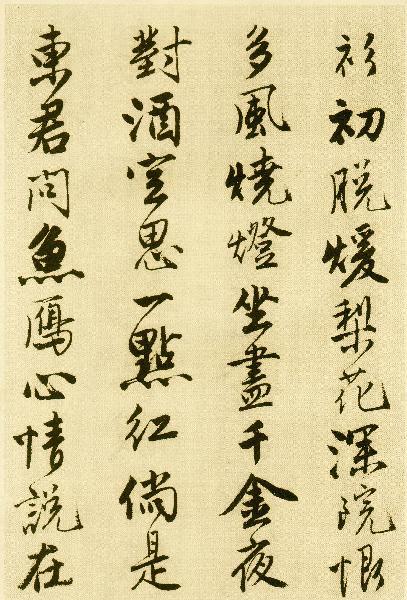 衫初脱煖梨花深院恨
多風燒燈坐盡千金夜
對酒空思一點紅倘是
東君問魚鴈心情說在